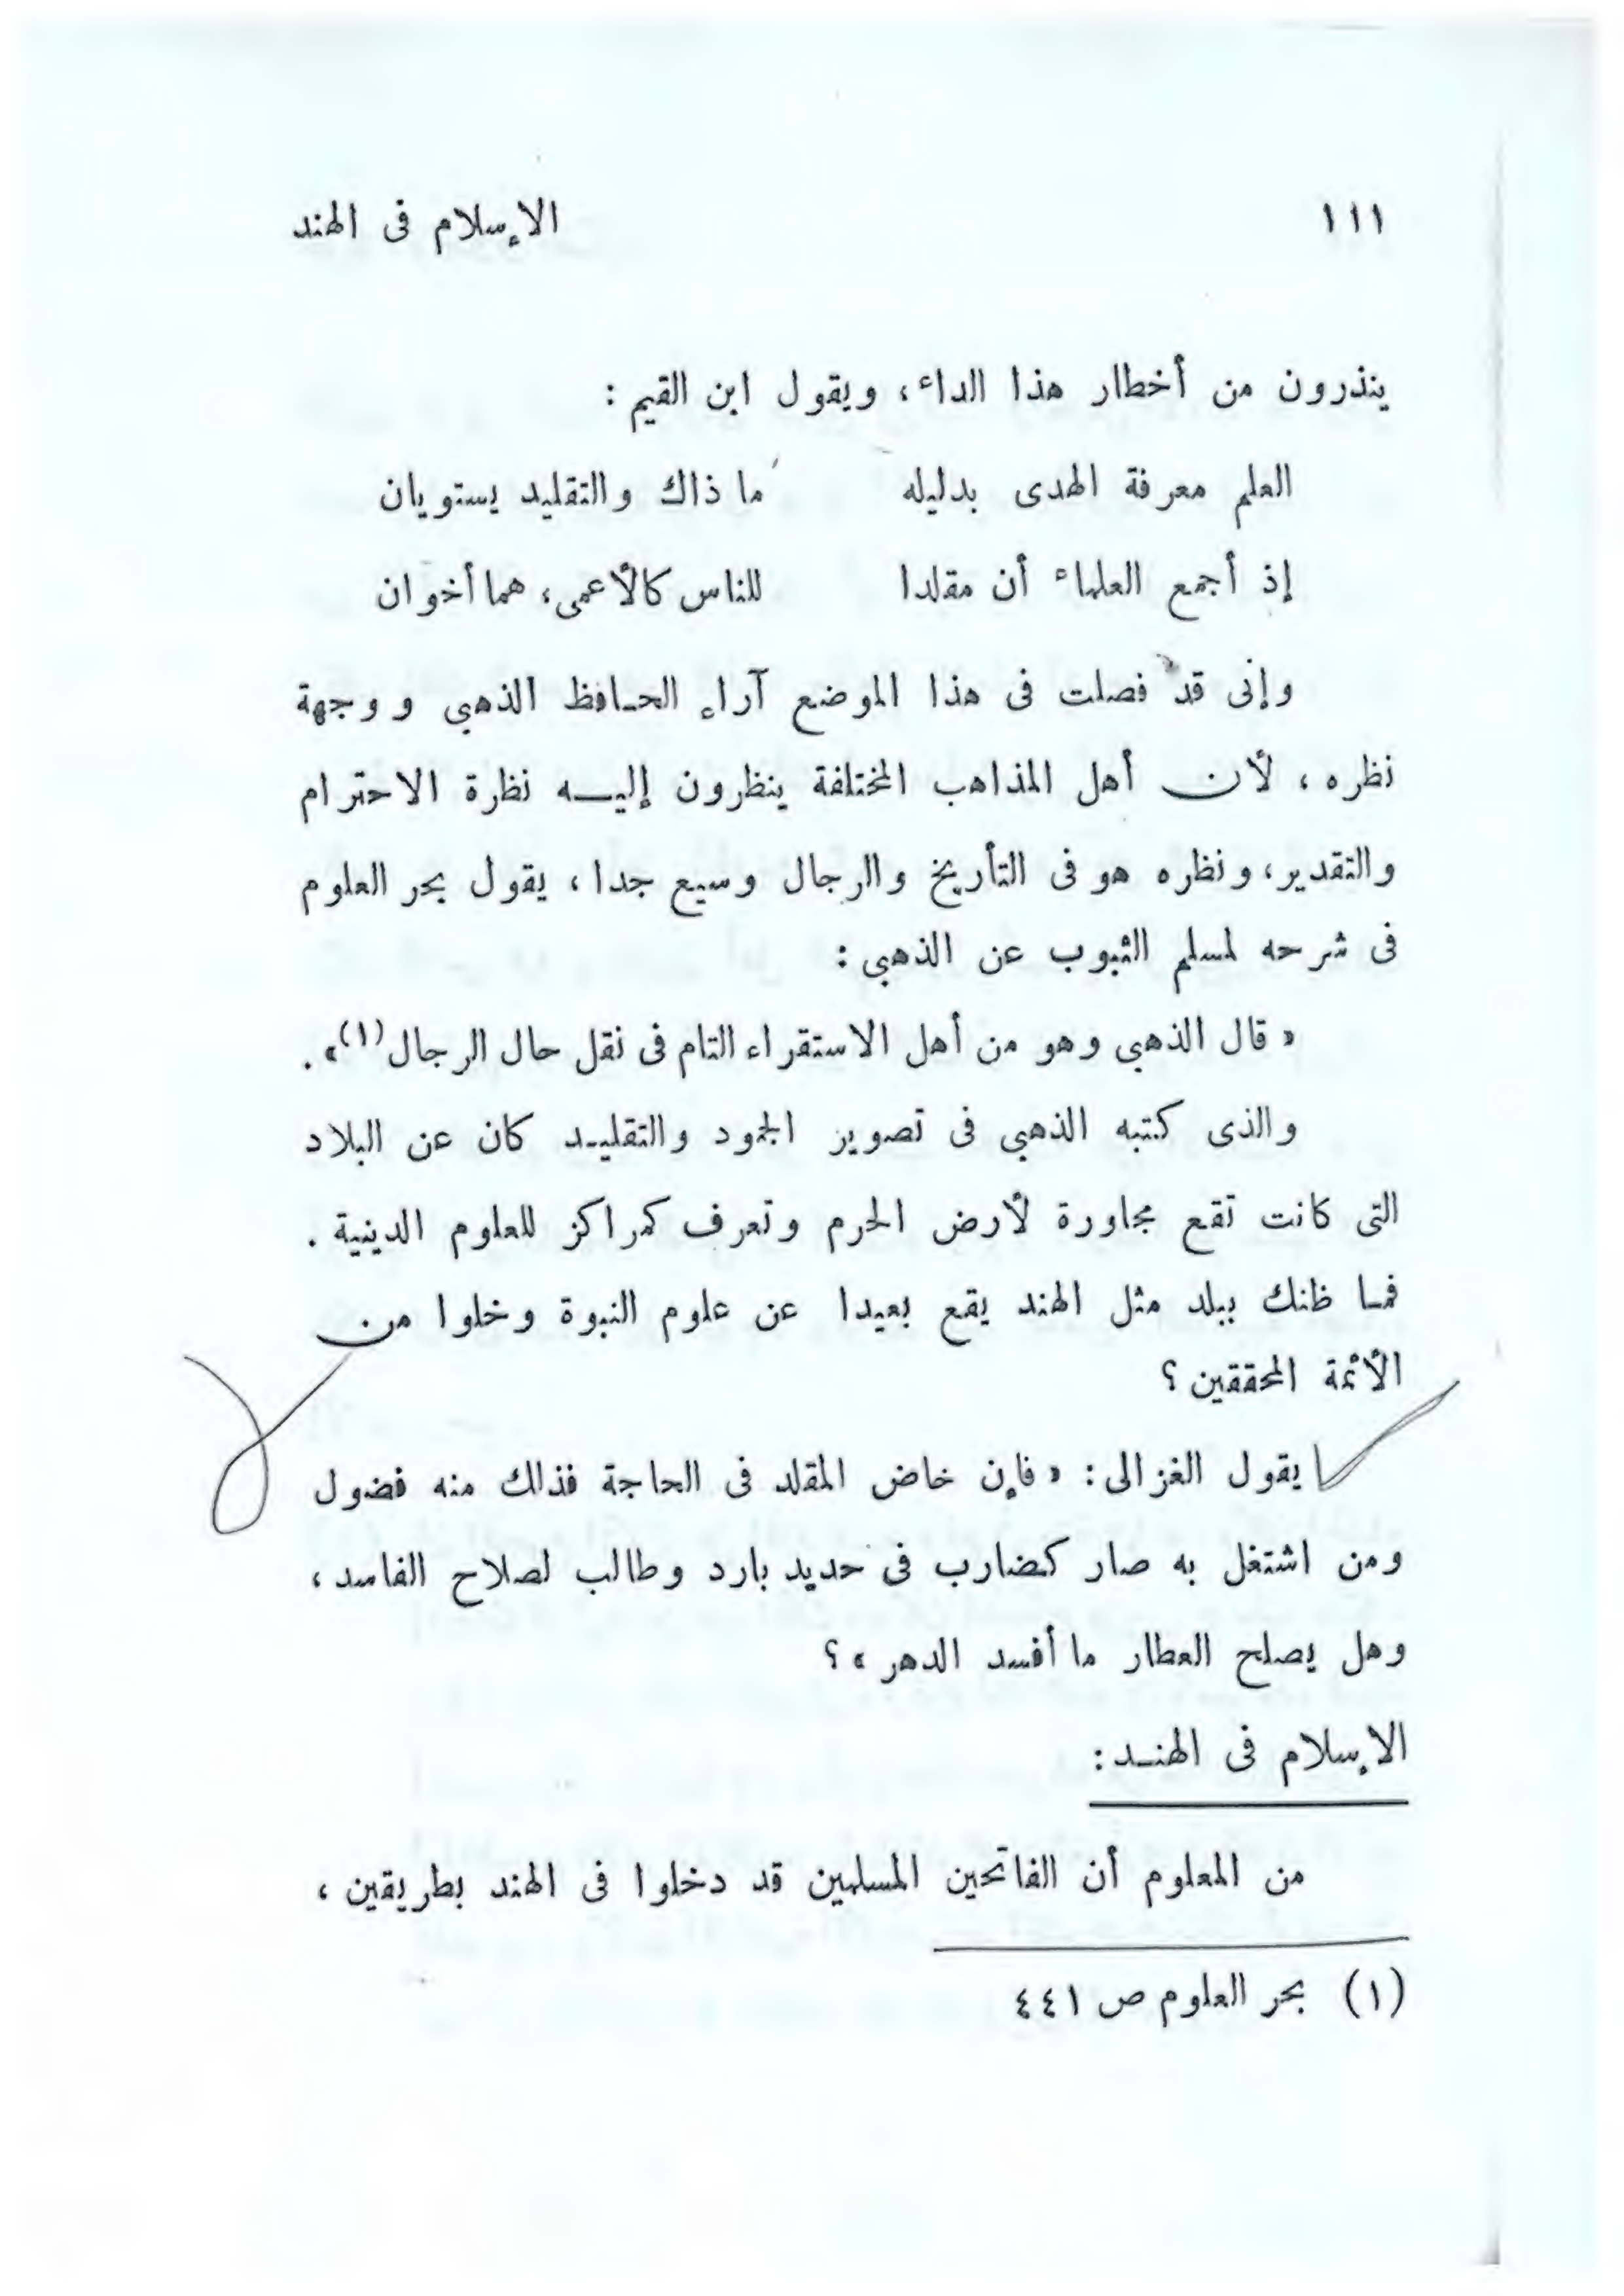 ١١١ الإسلام فى الهند
ينذرون من أخطار هذا الداء، ويقول ابن القيم :
العلم معرفة الهدى بدليله ما ذاك والتقليد يستويان
إذ أجمع العلماء أن مقلدا للناس كالأعمى، هما أخوان
وإنى قد فصلت فى هذا الموضع آراء الحافظ الذهبى ووجهة
نظره ، لأن أهل المذاهب المختلفة ينظرون إليه نظرة الاحترام
والتقدير، ونظره هو فى التأريخ والرجال وسيع جدا ، يقول بحر العلوم
فى شرحه لمسلم الثبوب عن الذهبى :
« قال الذهبى وهو من أهل الاستقراء التام فى نقل حال الرجال(١)» .
والذى كتبه الذهبى فى تصوير الجمود والتقليد كان عن البلاد
التى كانت تقع مجاورة لأرض الحرم وتعرف كمراكز للعلوم الدينية .
فما ظنك ببلد مثل الهند يقع بعيدا عن علوم النبوة وخلوا من
الأئمة المحققين ؟
يقول الغزالى : « فإن خاض المقلد فى الحاجة فذلك منه فضول
ومن اشتغل به صار كضارب فى حديد بارد وطالب لصلاح الفاسد ،
وهل يصلح العطار ما أفسد الدهر » ؟
الإسلام فى الهند :
من المعلوم أن الفاتحين المسلمين قد دخلوا فى الهند بطريقين ،
(١) بحر العلوم ص ٤٤١